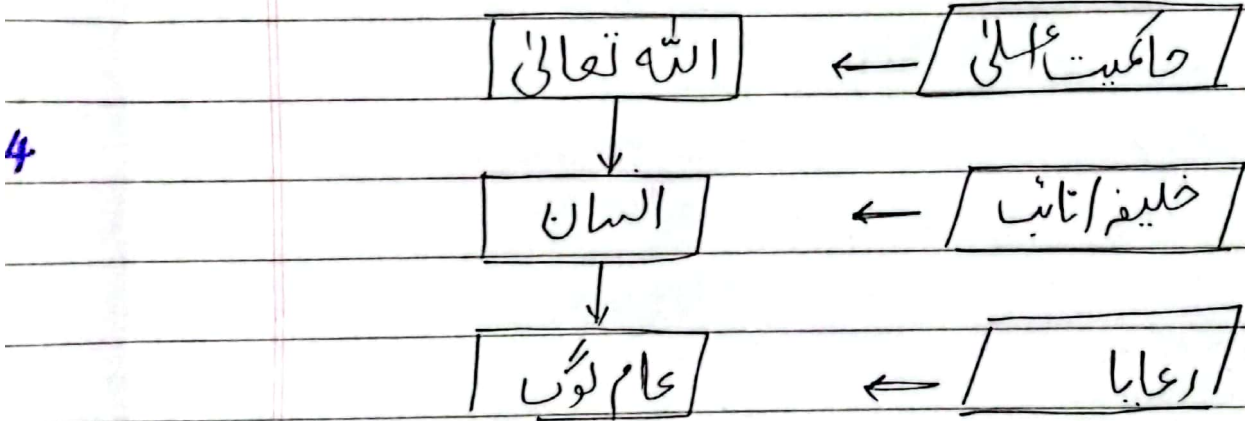 حاکمیت أعلیٰ ← اللہ تعالیٰ
4
خلیفہ / نائب ← انسان
رعایا ← عام لوگ